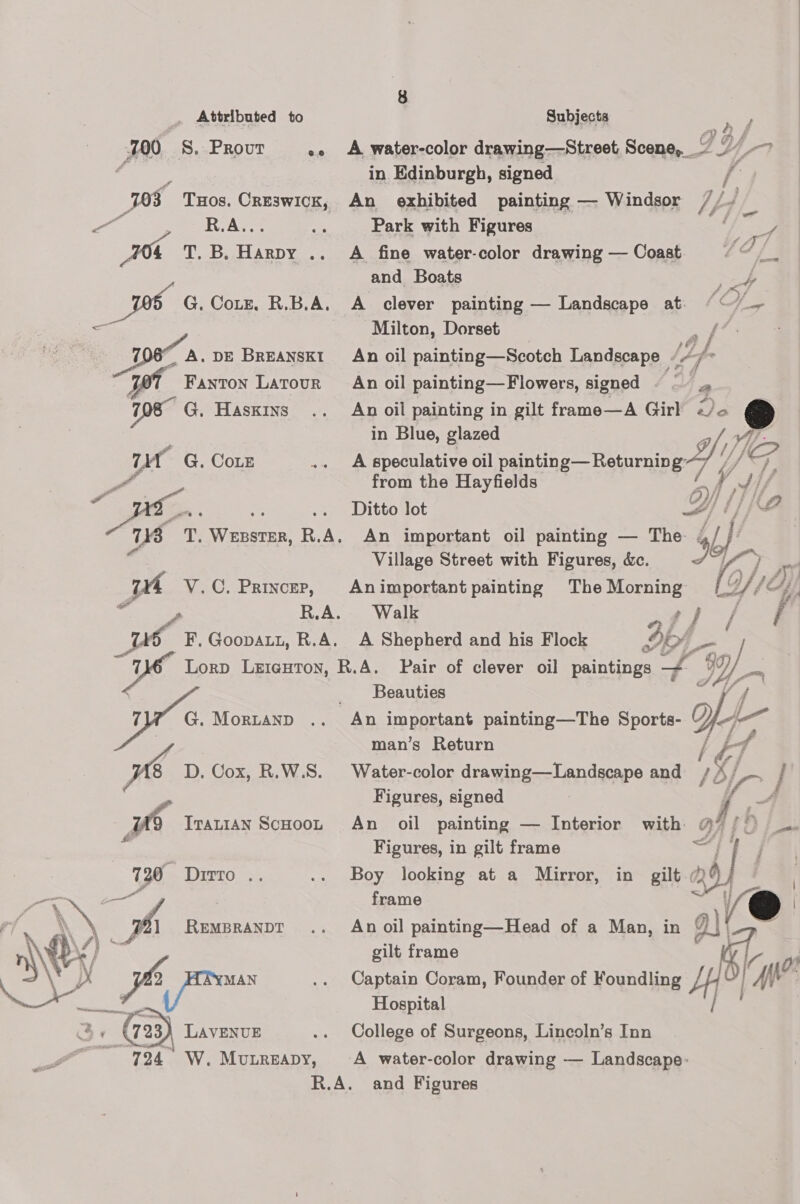 8
Attributed to Subjects
700 S. Prout .. A water-color drawing—Street Scene,
in Edinburgh, signed
703 Thos. Creswick, An exhibited painting — Windsor
R.A... .. Park with Figures
704 T. B. Hardy .. A fine water-color drawing — Coast
and Boats
705 G. Cole, R.B.A. A clever painting — Landscape at
Milton, Dorset
706 A. de Breanski An oil painting—Scotch Landscape
707 Fanton Latour An oil painting—Flowers, signed
708 G. Haskins .. An oil painting in gilt frame—A Girl
in Blue, glazed
711 G. Cole .. A speculative oil painting—Returning
from the Hayfields
712 .. .. .. Ditto lot
713 T. Webster, R.A. An important oil painting — The
Village Street with Figures, &c.
714 V. C. Princep, An important painting The Morning
R.A. Walk
715 F. Goodall, R.A. A Shepherd and his Flock
716 Lord Leighton, R.A. Pair of clever oil paintings
Beauties
717 G. Morland .. An important painting—The Sports-
man's Return
718 D. Cox, R.W.S. Water-color drawing—Landscape and
Figures, signed
719 Italian School An oil painting — Interior with
Figures, in gilt frame
720 Ditto .. .. Boy looking at a Mirror, in gilt
frame
721 Rembrandt .. An oil painting—Head of a Man, in
gilt frame
722 Hayman .. Captain Coram, Founder of Foundling
Hospital
723 Lavenue .. College of Surgeons, Lincoln's Inn
724 W. Mulready, A water-color drawing — Landscape
R.A. and Figures